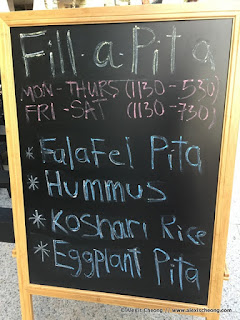 Fill-a-Pita
MON-THURS (1130-530)
FRI-SAT (1130-730)
* Falafel Pita
* Hummus
* Koshari Rice
* Eggplant Pita
www.alexischeong.com